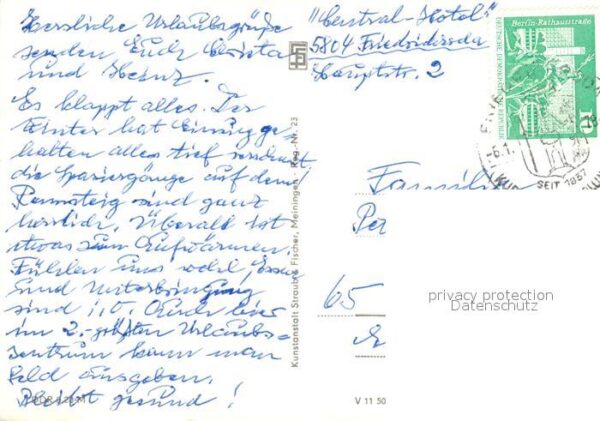 Herzliche Urlaubsgrüße
senden Euch Christa
und Heinz.
Es klappt alles. Der
Winter hat Einzug ge-
halten alles tief verschneit
die Spaziergänge auf dem
Rennsteig sind ganz
herrlich. Überall ist
etwas zum Aufwärmen.
Fühlen uns wohl, Essen
und Unterbringung
sind i.O. Auch hier
im 2.-größten Urlaubs-
zentrum kann man
Geld ausgeben.
Bleibt gesund!
"Central-Hotel"
5804 Friedrichroda
Hauptstr. 2
Berlin-Rathausstraße
10
SEIT 1837
Familie
Pet
65
privacy protection
Datenschutz
Kunstanstalt Straub & Fischer, Meiningen Reg.-Nr. 23
V 11 50